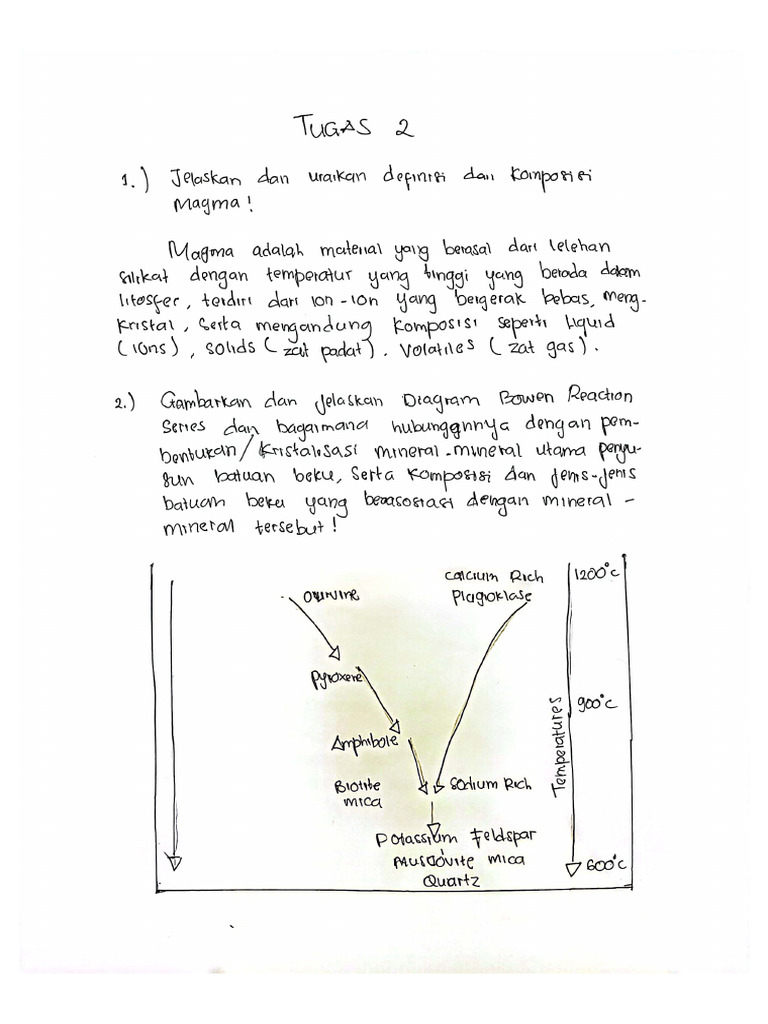 TUGAS 2
1.) Jelaskan dan uraikan definisi dan komposisi
Magma!
Magma adalah material yang berasal dari lelehan
silikat dengan temperatur yang tinggi yang berada dalam
litosfer, terdiri dari ion-ion yang bergerak bebas, meng-
kristal, serta mengandung komposisi seperti liquid
(ions), solids (zat padat). Volatiles (zat gas).
2.) Gambarkan dan jelaskan Diagram Bowen Reaction
Series dan bagaimana hubunggnnya dengan pem-
bentukan/kristalisasi mineral-mineral utama penyu-
sun batuan beku, serta komposisi dan jenis-jenis
batuan beku yang berasosiasi dengan mineral-
mineral tersebut!
Calcium Rich 1200°C
Olivine Plagioklase
Pyroxene
900°C
Temperatures
Amphibole
Biotite Sodium Rich
mica
Potassium Feldspar
Muscovite mica 600°C
Quartz